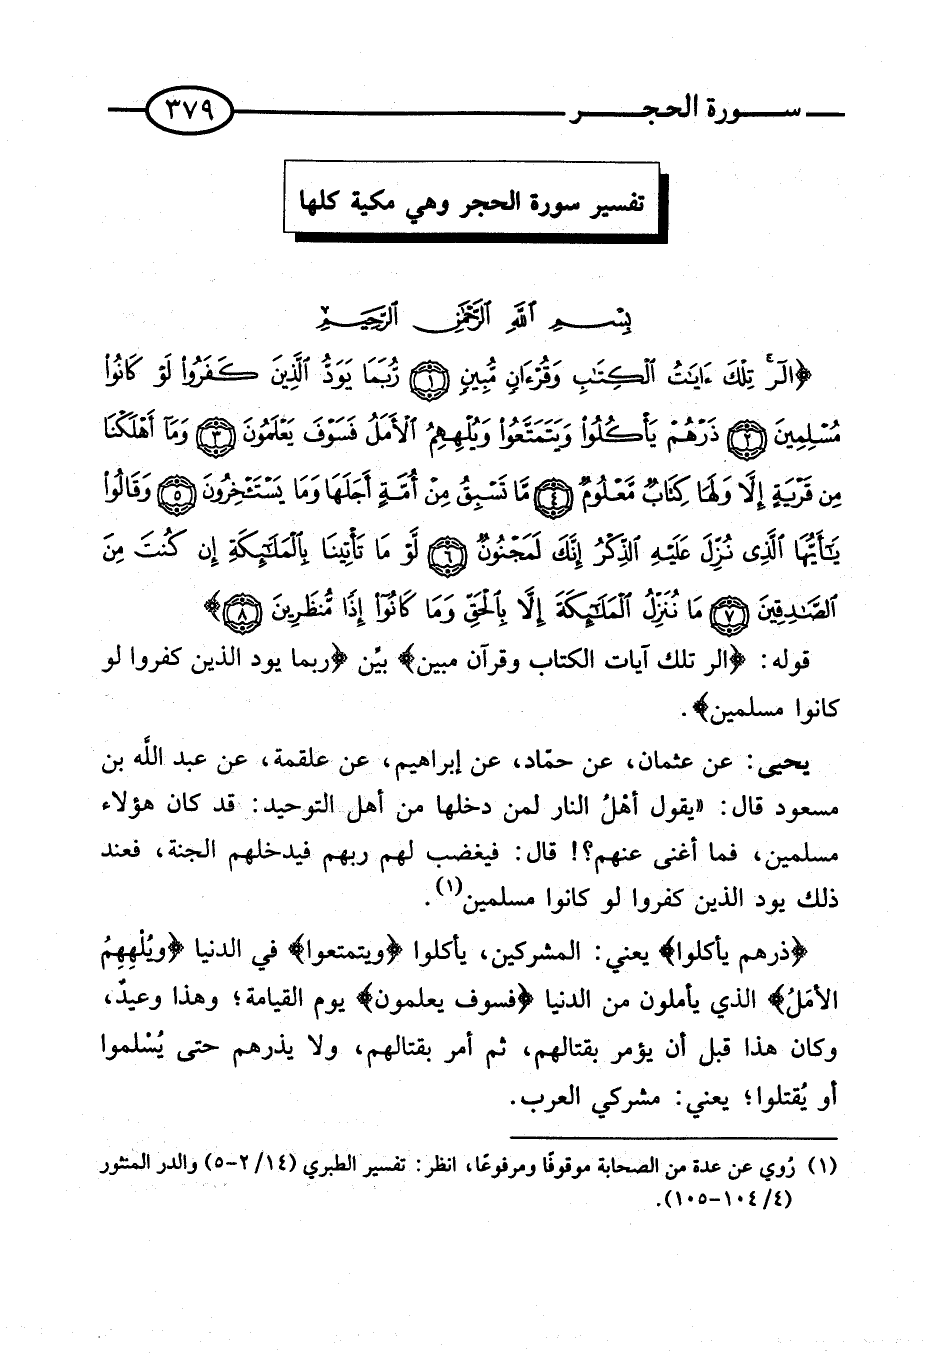 سورة الحجر ٣٧٩
تفسير سورة الحجر وهي مكية كلها
بِسْمِ ٱللَّهِ ٱلرَّحْمَٰنِ ٱلرَّحِيمِ
﴿الٓرۚ تِلْكَ ءَايَٰتُ ٱلْكِتَٰبِ وَقُرْءَانٍ مُّبِينٍ ۝١ رُّبَمَا يَوَدُّ ٱلَّذِينَ كَفَرُوا۟ لَوْ كَانُوا۟
مُسْلِمِينَ ۝٢ ذَرْهُمْ يَأْكُلُوا۟ وَيَتَمَتَّعُوا۟ وَيُلْهِهِمُ ٱلْأَمَلُ فَسَوْفَ يَعْلَمُونَ ۝٣ وَمَآ أَهْلَكْنَا
مِن قَرْيَةٍ إِلَّا وَلَهَا كِتَابٌ مَّعْلُومٌ ۝٤ مَّا تَسْبِقُ مِنْ أُمَّةٍ أَجَلَهَا وَمَا يَسْتَـْٔخِرُونَ ۝٥ وَقَالُوا۟
يَٰٓأَيُّهَا ٱلَّذِى نُزِّلَ عَلَيْهِ ٱلذِّكْرُ إِنَّكَ لَمَجْنُونٌ ۝٦ لَّوْ مَا تَأْتِينَا بِٱلْمَلَٰٓئِكَةِ إِن كُنتَ مِنَ
ٱلصَّٰدِقِينَ ۝٧ مَا نُنَزِّلُ ٱلْمَلَٰٓئِكَةَ إِلَّا بِٱلْحَقِّ وَمَا كَانُوٓا۟ إِذًا مُّنظَرِينَ ۝٨﴾
قوله: ﴿الر تلك آيات الكتاب وقرآن مبين﴾ بيِّن ﴿ربما يود الذين كفروا لو
كانوا مسلمين﴾.
يحيى: عن عثمان، عن حمّاد، عن إبراهيم، عن علقمة، عن عبد اللَّه بن
مسعود قال: «يقول أهْلُ النار لمن دخلها من أهل التوحيد: قد كان هؤلاء
مسلمين، فما أغنى عنهم؟! قال: فيغضب لهم ربهم فيدخلهم الجنة، فعند
ذلك يود الذين كفروا لو كانوا مسلمين(١).
﴿ذرهم يأكلوا﴾ يعني: المشركين، يأكلوا ﴿ويتمتعوا﴾ في الدنيا ﴿ويُلْهِهِمُ
الأمَلُ﴾ الذي يأملون من الدنيا ﴿فسوف يعلمون﴾ يوم القيامة؛ وهذا وعيدٌ،
وكان هذا قبل أن يؤمر بقتالهم، ثم أمر بقتالهم، ولا يذرهم حتى يُسْلموا
أو يُقتلوا؛ يعني: مشركي العرب.
(١) رُوي عن عدة من الصحابة موقوفًا ومرفوعًا، انظر: تفسير الطبري (١٤/ ٢-٥) والدر المنثور
(٤/ ١٠٤-١٠٥).